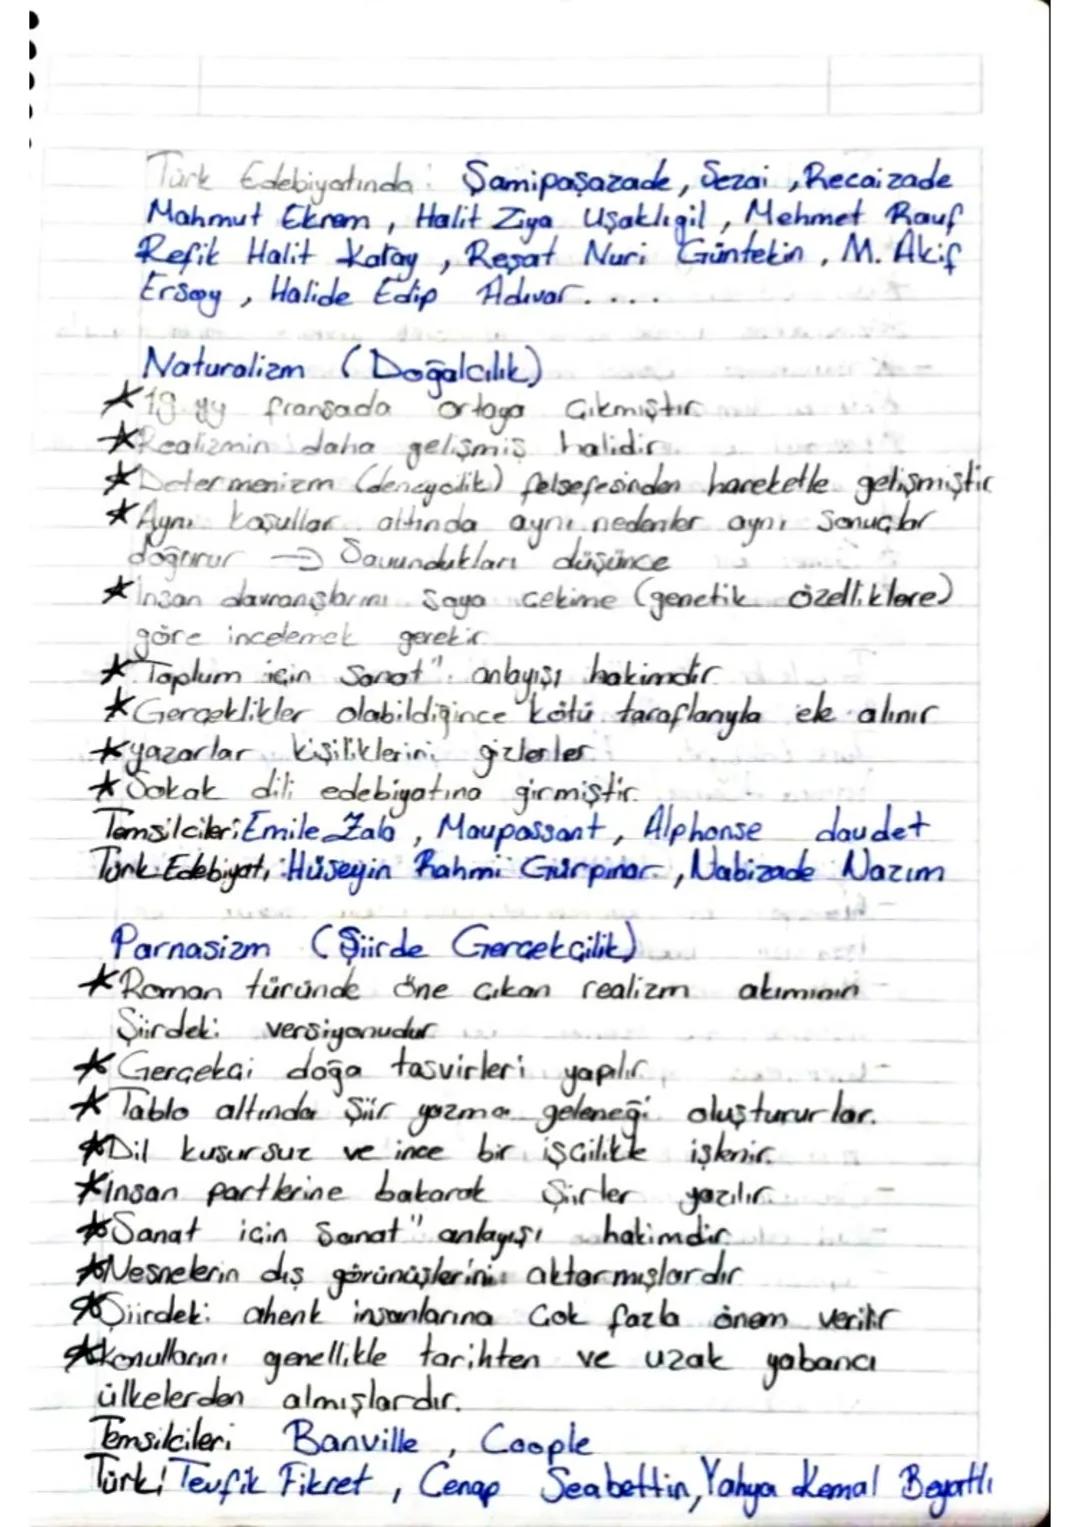 Türk Edebiyatında: Şamipaşazade, Sezai, Recaizade
Mahmut Ekrem, Halit Ziya Uşaklıgil, Mehmet Rauf
Refik Halit Karay, Reşat Nuri Güntekin, M. Akif
Ersoy, Halide Edip Adıvar....
Naturalizm (Doğalcılık)
*19.yy fransada ortaya çıkmıştır
*Realizmin daha gelişmiş halidir
*Determenizm (deneycilik) felsefesinden hareketle gelişmiştir
*Aynı koşullar altında aynı nedenler aynı sonuçlar
doğurur → Savundukları düşünce
*İnsan davranışlarını soya çekime (genetik özelliklere)
göre incelemek gerekir
*Toplum için sanat" anlayışı hakimdir.
*Gerçeklikler olabildiğince kötü taraflarıyla ele alınır
*yazarlar kişiliklerini gizlerler
*Sokak dili edebiyatına girmiştir.
Temsilcileri: Emile Zala, Maupassant, Alphonse daudet
Türk Edebiyatı: Hüseyin Rahmi Gürpınar, Nabizade Nazım
Parnasizm (Şiirde Gerçekçilik)
*Roman türünde öne çıkan realizm akımının
Şiirdeki versiyonudur
*Gerçekçi doğa tasvirleri yapılır
*Tablo altında şiir yazma geleneği oluştururlar.
*Dil kusursuz ve ince bir işçilikle işlenir.
*İnsan partlerine bakarak şiirler yazılır
*Sanat için sanat" anlayışı hakimdir
*Nesnelerin dış görünüşlerini aktarmışlardır
*Şiirdeki ahenk insanlarına çok fazla önem verilir
*konullarını genellikle tarihten ve uzak yabancı
ülkelerden almışlardır.
Temsilcileri Banville, Coople
Türk! Tevfik Fikret, Cenap Seabettin, Yahya Kemal Beyatlı